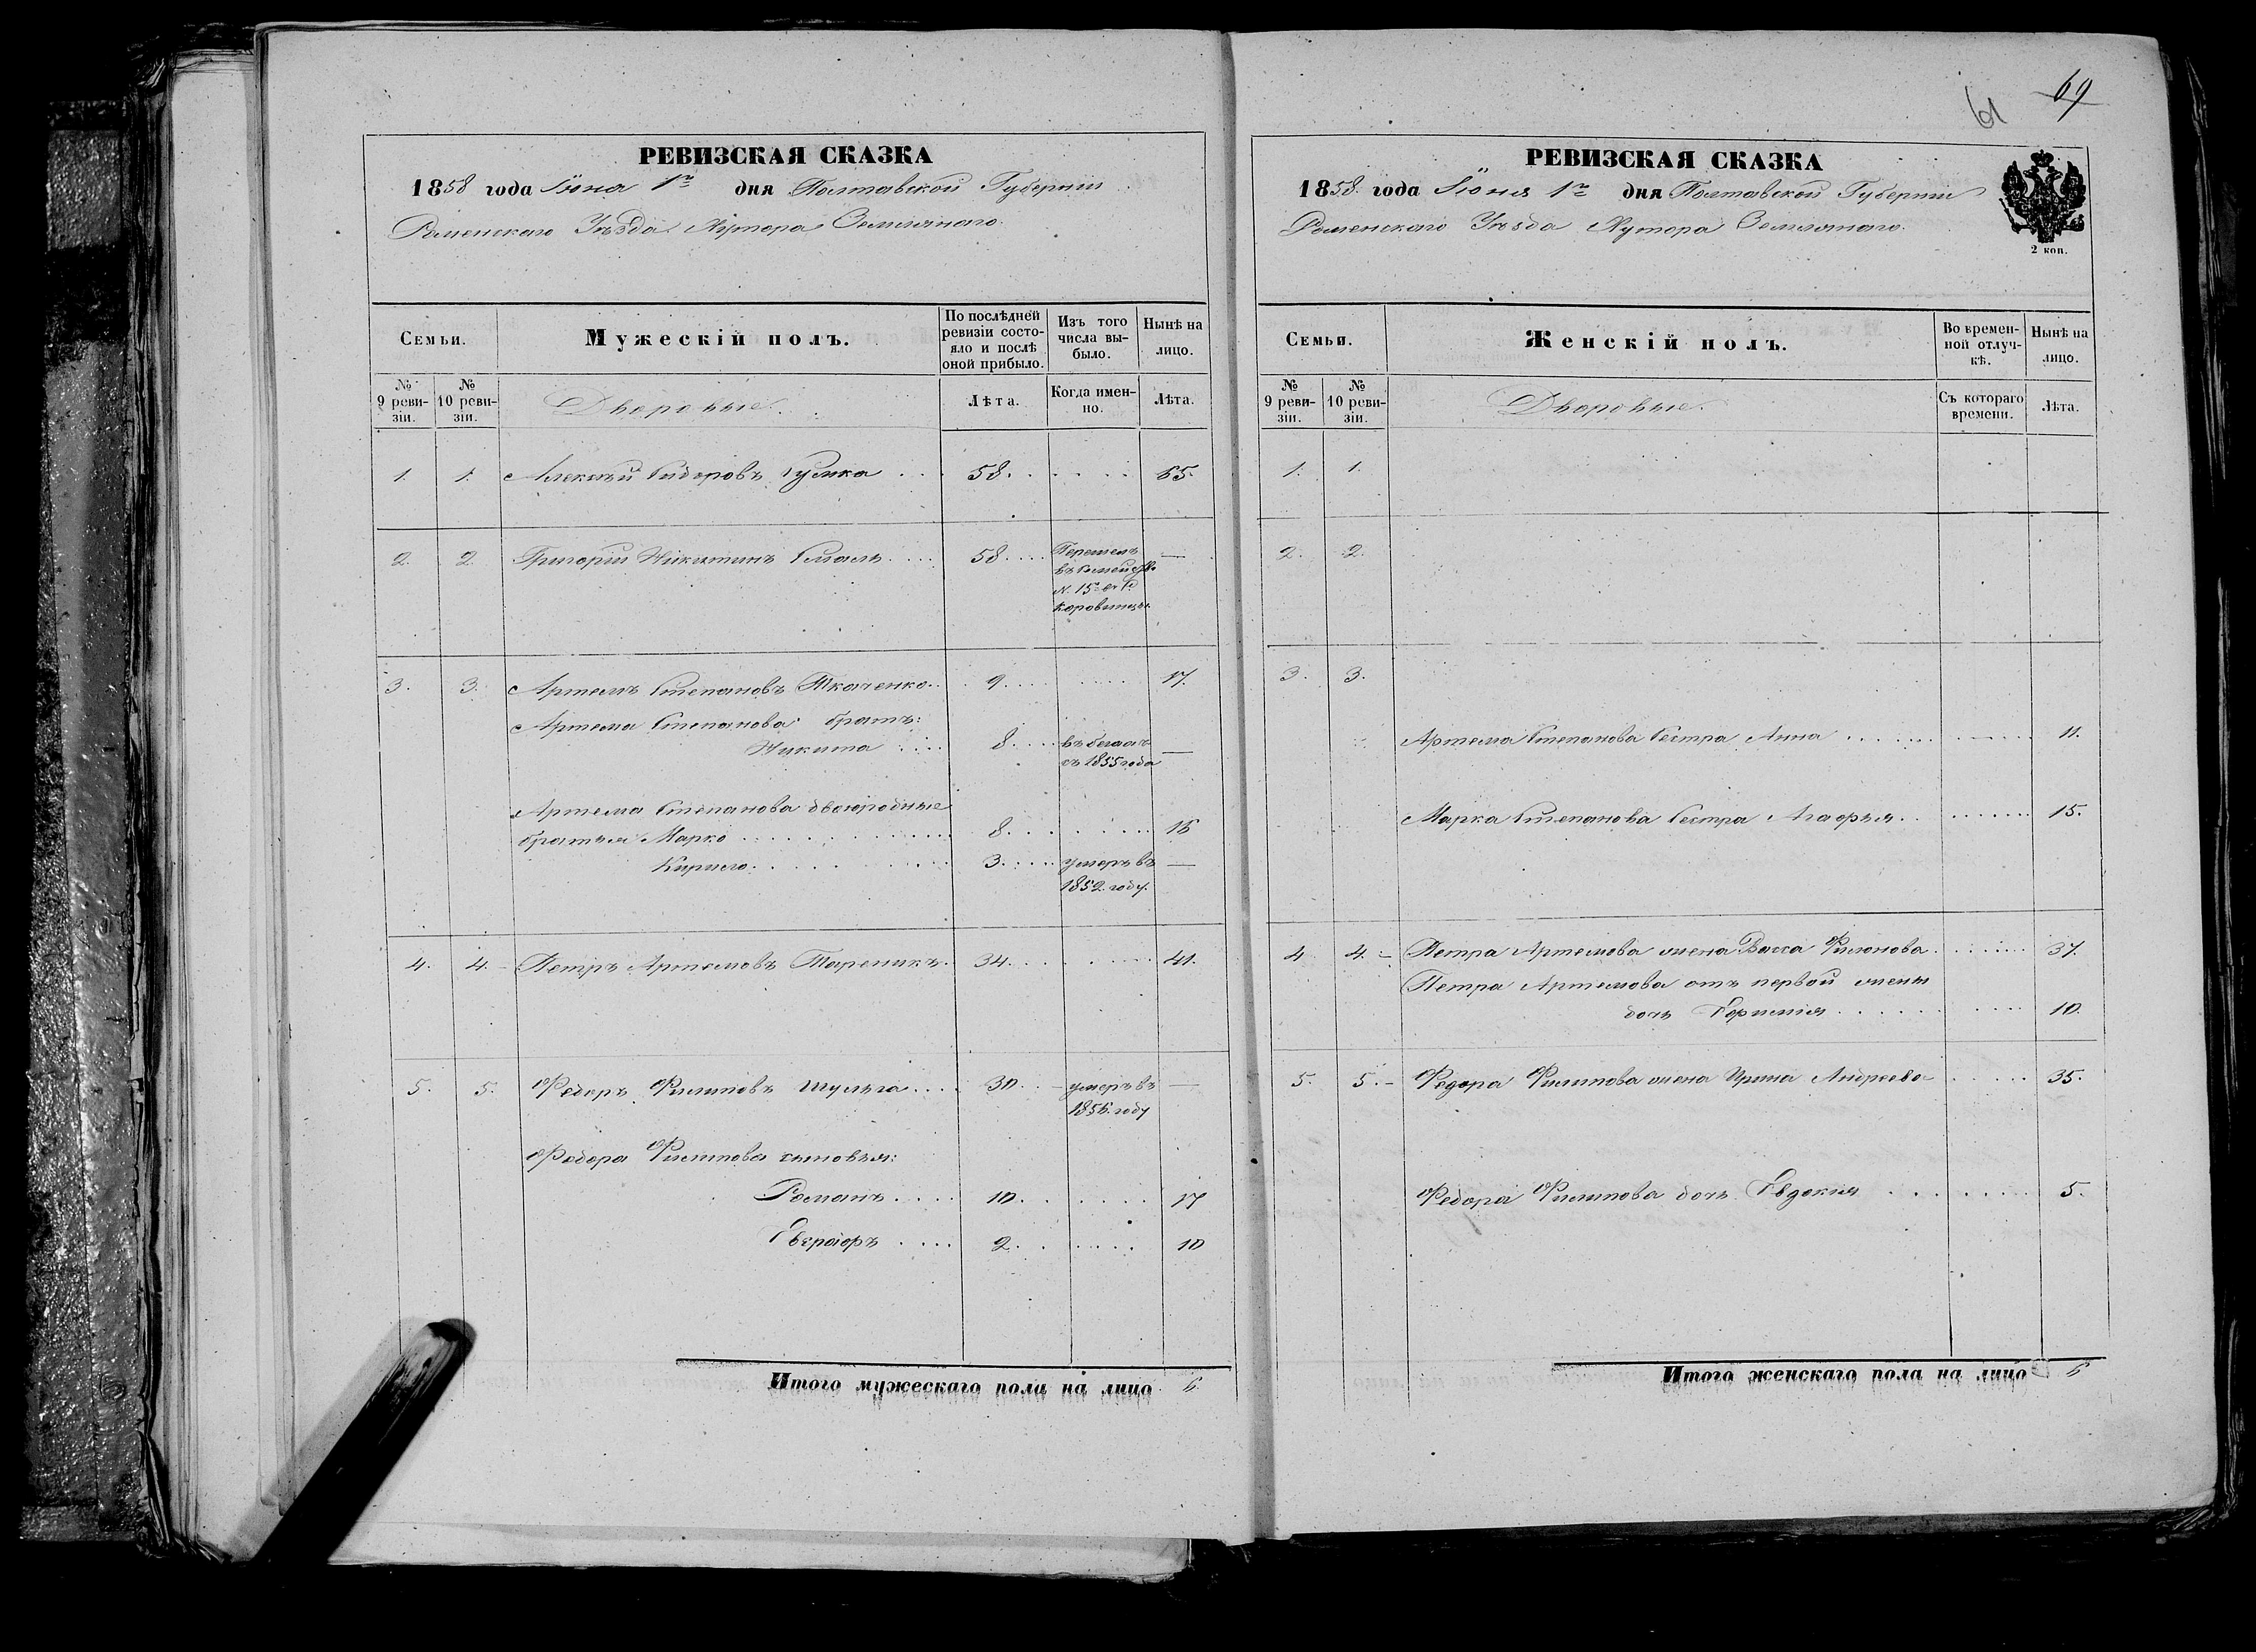 61 69
РЕВИЗСКАЯ СКАЗКА
1858 года Іюня 1го дня Полтавской Губерніи
Роменскаго Уѣзда Хутора Землянаго.
Семьи.
Мужескій полъ.
По послѣдней ревизіи состояло и послѣ оной прибыло.
Изъ того числа выбыло.
Нынѣ на лицо.
№ 9 ревизіи.
№ 10 ревизіи.
Дворовые.
Лѣта.
Когда именно.
Лѣта.
1. 1. Алексѣй Сидоровъ Гулка 58. 65.
2. 2. Григорій Никитинъ 58. Перешелъ —
N. 15
3. 3. Артемъ Степановъ Ткаченко 9. 17.
Артема Степанова братъ:
Никита 8. въ бегахъ —
съ 1855 года
Артема Степанова двоюродные
братья Марко 8. 16
Кирило 3. умеръ въ —
1852. году.
4. 4. Петръ Артемовъ 34. 41.
5. 5. Федоръ Филиповъ Шульга 30. умеръ въ —
1856. году
Федора Филипова сыновья:
Романъ 10. 17
2. 10
Итого мужескаго пола на лицо 6
РЕВИЗСКАЯ СКАЗКА
1858. года Іюня 1го дня Полтавской Губерніи
Роменскаго Уѣзда Хутора Землянаго.
2 коп.
Семьи.
Женскій полъ.
Во временной отлучкѣ.
Нынѣ на лицо.
№ 9 ревизіи.
№ 10 ревизіи.
Дворовые.
Съ котораго времени.
Лѣта.
1. 1.
2. 2.
3. 3.
Артема Степанова Сестра Анна 11.
Марка Степанова Сестра Агафья 15.
4. 4. Петра Артемова жена Васса Филонова 37.
Петра Артемова отъ первой жены
дочь Ефимія 10.
5. 5. Федора Филипова жена Ирина Андреева 35.
Федора Филипова дочь Евдокия 5.
Итого женскаго пола на лицо 6